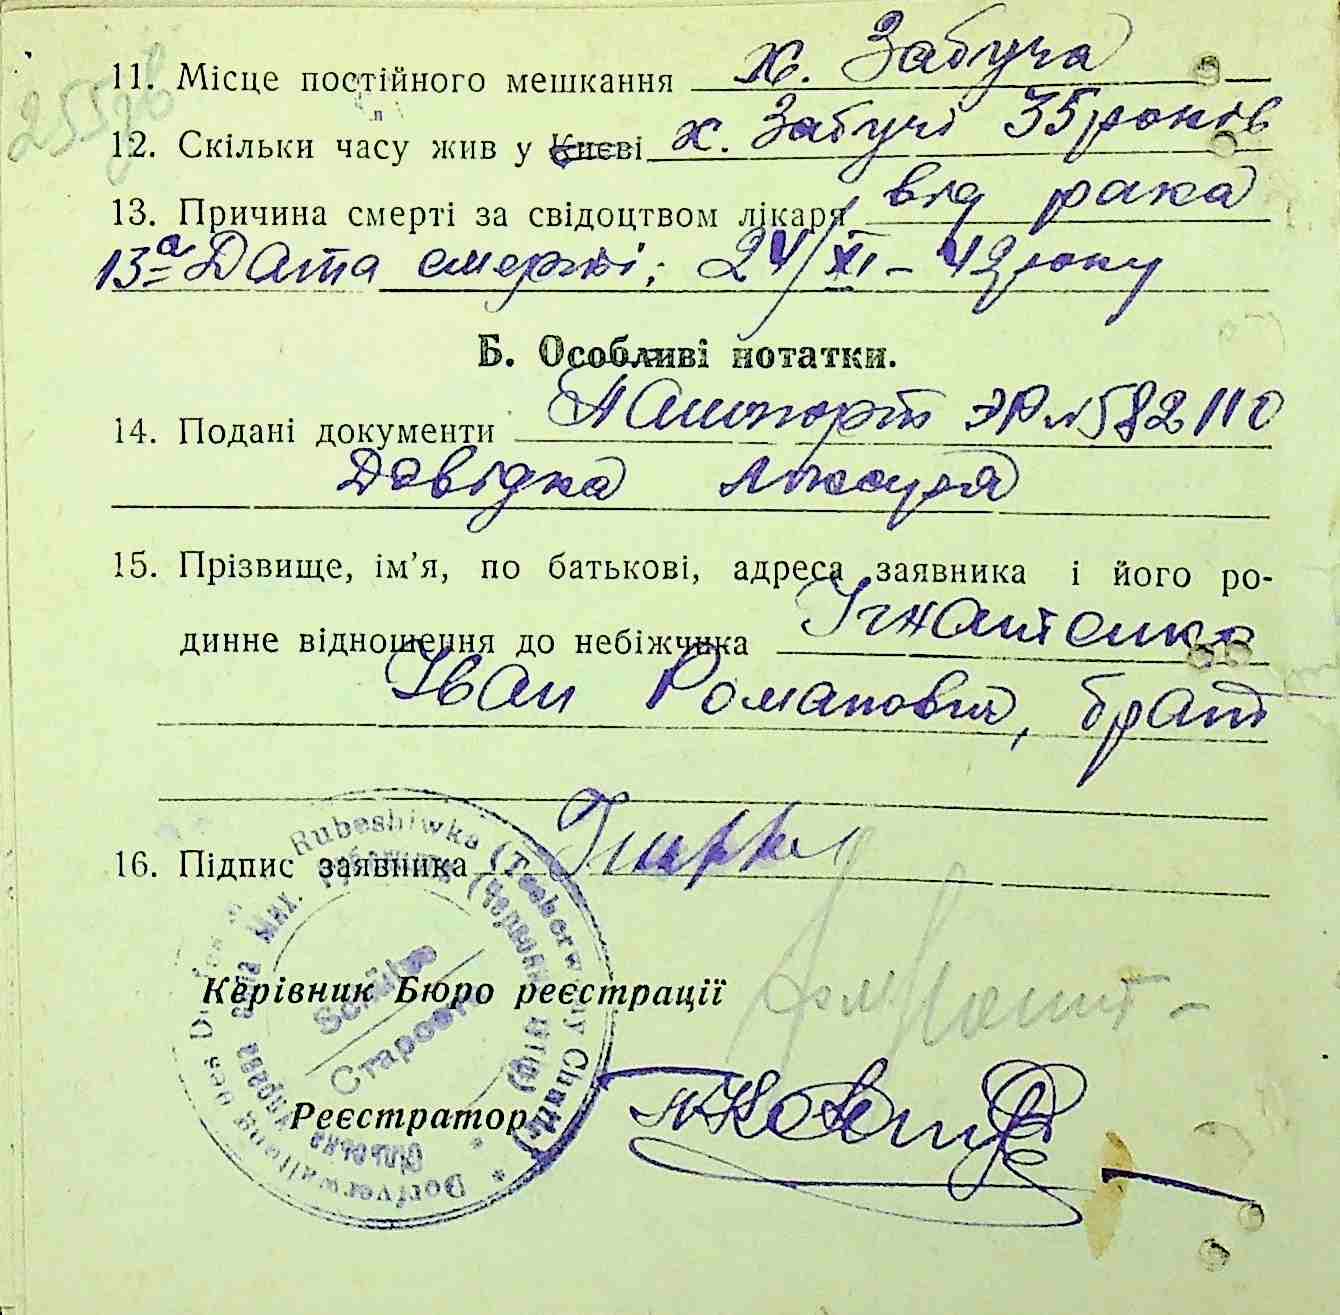 255дв
11. Місце постійного мешкання х. Забуча
12. Скільки часу жив у Києві х. Забучі 35 років
13. Причина смерті за свідоцтвом лікаря від рака
13а Дата смерті; 24/XI - 42 року
Б. Особливі нотатки.
14. Подані документи Пашпорт ЭР №582110
Довідка лікаря
15. Прізвище, ім’я, по батькові, адреса заявника і його ро-
динне відношення до небіжчика Ігнатенко
Іван Романович, брат
16. Підпис заявника
Керівник Бюро реєстрації
Реєстратор
Rubeshiwka
Schulze
Староста